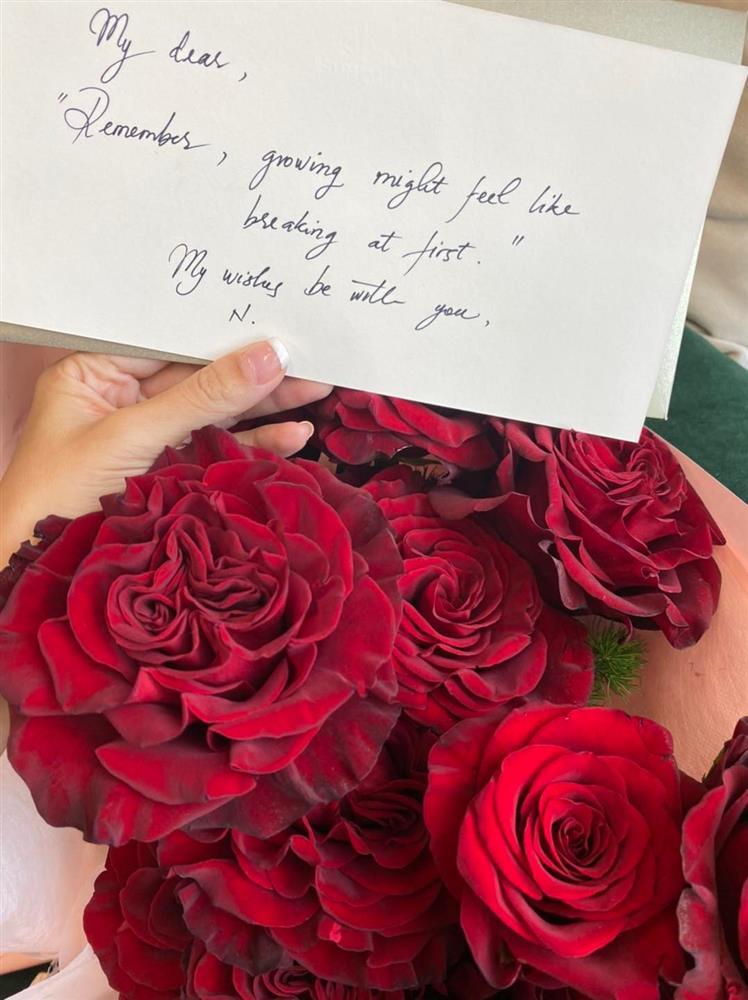 My dear,
"Remember, growing might feel like
breaking at first."
My wishes be with you,
N.